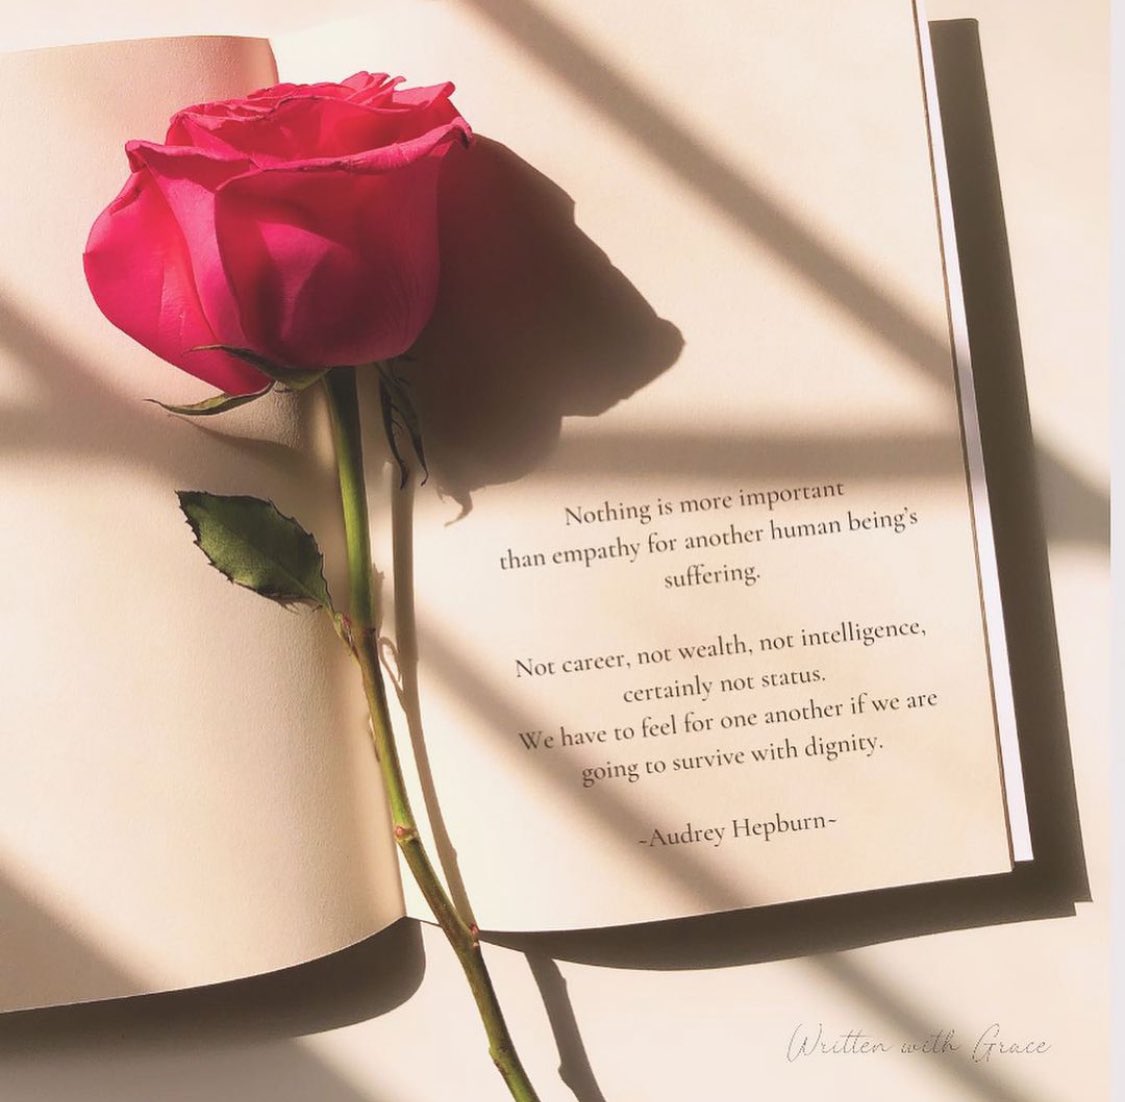 Nothing is more important
than empathy for another human being's
suffering.
Not career, not wealth, not intelligence,
certainly not status.
We have to feel for one another if we are
going to survive with dignity.
~Audrey Hepburn~
Written with Grace